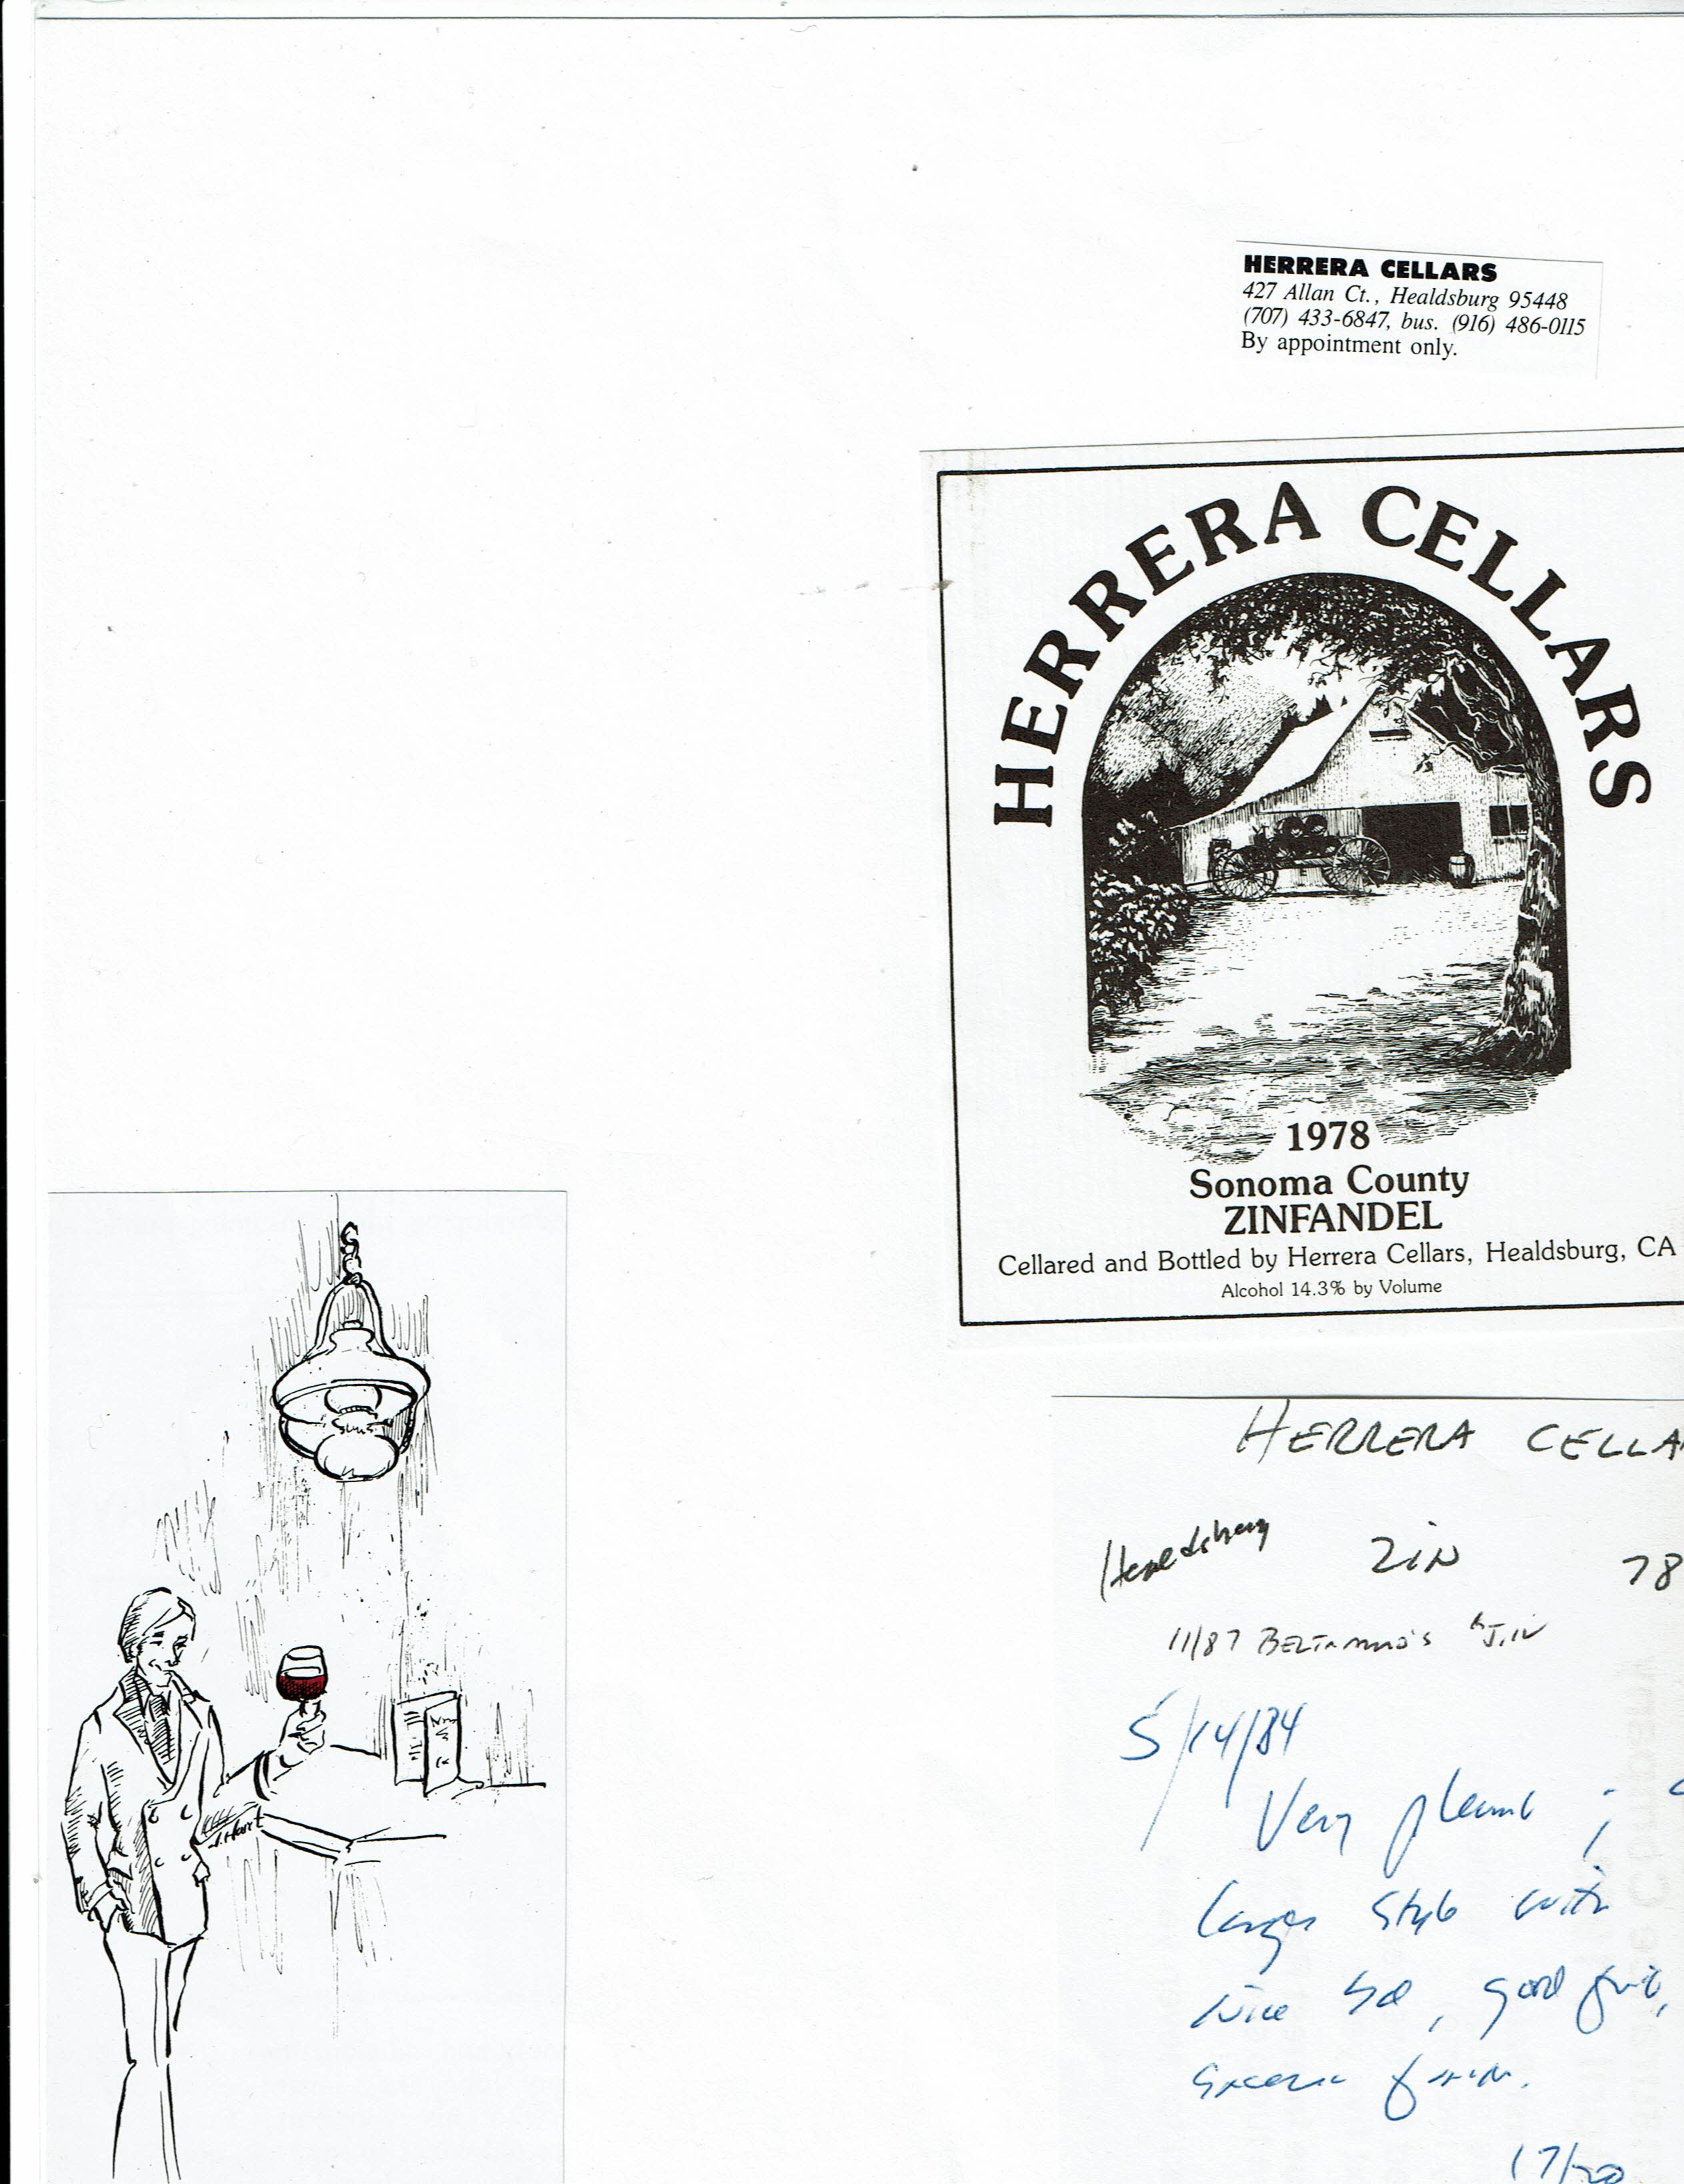 HERRERA CELLARS
427 Allan Ct., Healdsburg 95448
(707) 433-6847, bus. (916) 486-0115
By appointment only.
HERRERA CELLARS
1978
Sonoma County
ZINFANDEL
Cellared and Bottled by Herrera Cellars, Healdsburg, CA
Alcohol 14.3% by Volume
J. Hart
HERRERA CELLA
Healdsburg ZiN 78
11/87
5/14/84
Very
style with
nice good fruit,
17/20